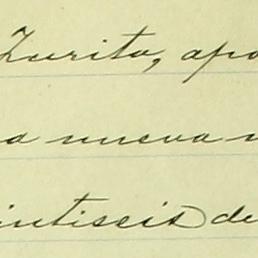 Zurita, apo
a nueva
intiseis de